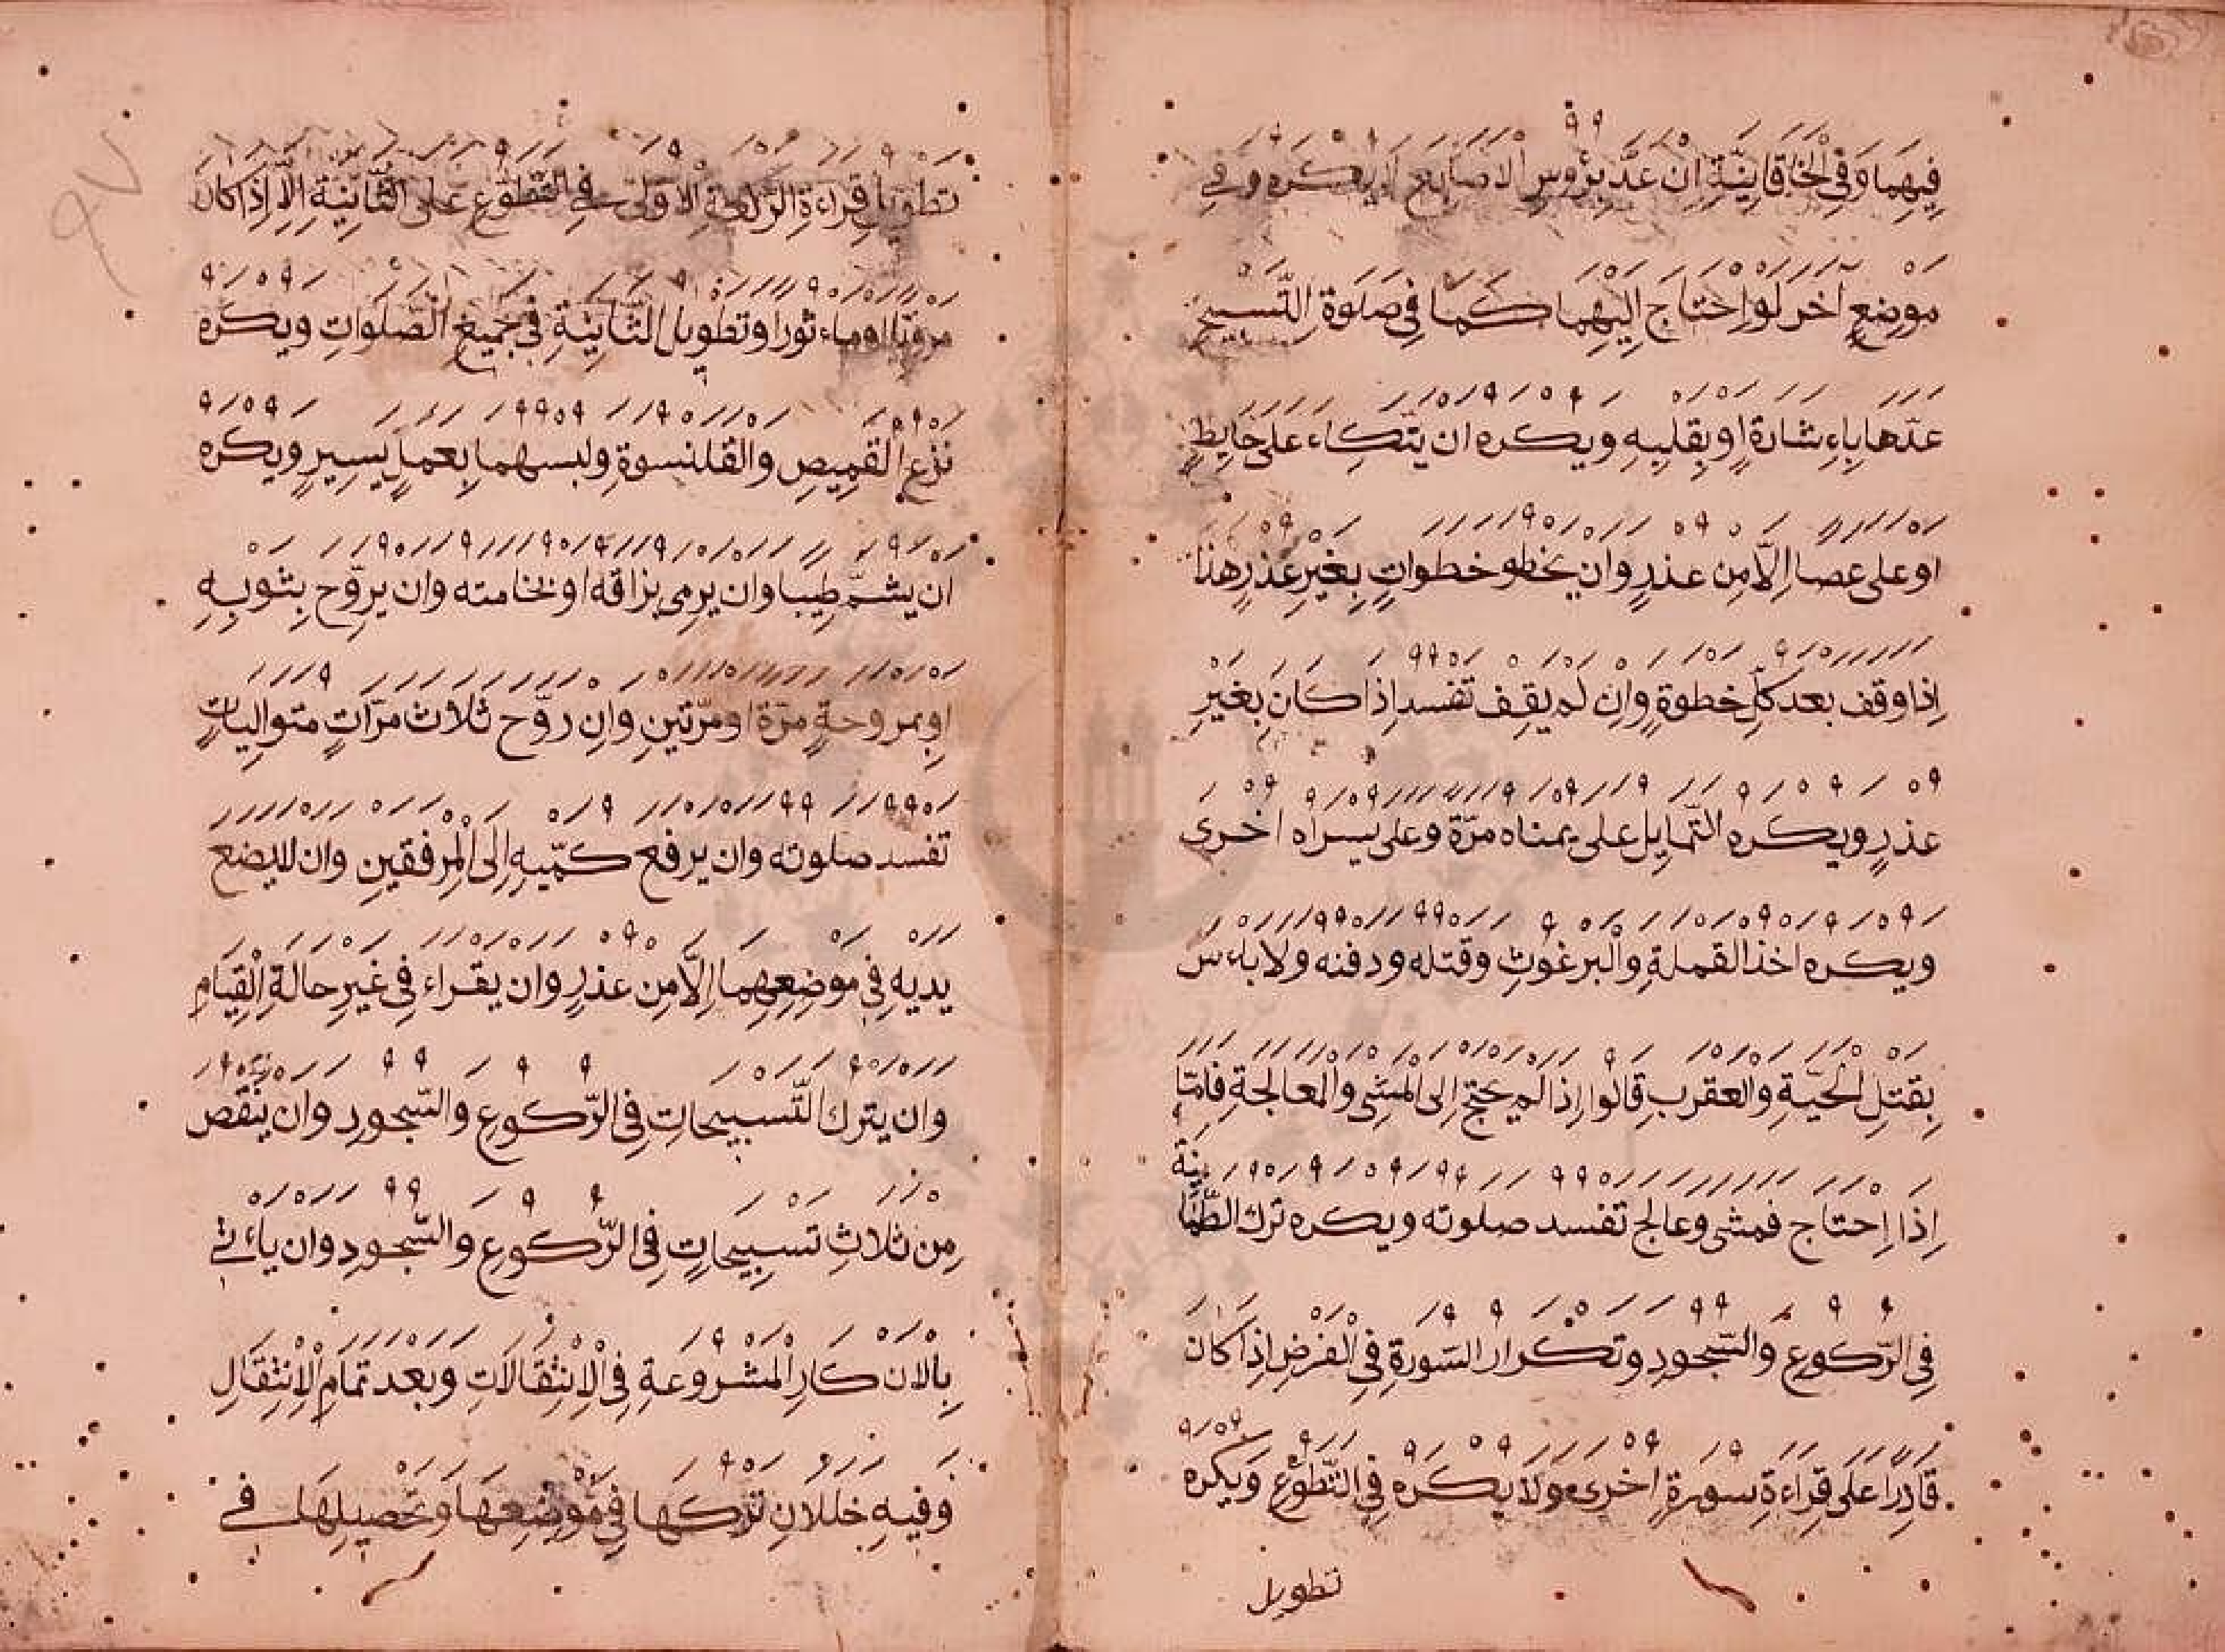 فِيهِمَا وَفِي الْخَاقَانِيَّةِ اِنْ عَدَّ بِرُؤسِ الاصَابِعِ لا يكره وَفِي
موضِعٍ آخر لَوِاحتاج اِلَيْهِمَا كَمَا فِي صَلَوةِ التَّسبيح
عدّها بِاءِشارةٍ او بِقلبِهِ ويكره ان يتّكاء على حَايِطٍ
او على عصا اِلَّا مِن عذرٍ وان يخطو خطواتٍ بِغَيْرِ عذرٍ هذا
اِذا وقف بعد كلّ خطوةٍ وان لم يقِف تفسد اِذا كانَ بِغَيْرِ
عذرٍ ويكره التّمايل على يمناه مرّة وعلى يسراه اخرى
ويكره اخذ القملةِ والبرغوثِ وقتله ودفنه ولا باءس
بِقتلِ الحيّةِ والعقربِ قالوا اِذا لم يحتج اِلى المشي والمعالجةِ فامّا
اِذا اِحتاج فمشى وعالج تفسد صلوته ويكره ترك الطّمَا
ينة
فِي الرّكوعِ والسّجودِ وتكرار السّورةِ فِي الْفرضِ اِذا كانَ
قادِرًا على قِراءةِ سورةٍ اخرى ولا يكره فِي التّطوّعِ ويكره
تطويل
تطويل قِراءةِ الرّكعةِ الاولى فِي التّطوّعِ على الثّانِيةِ اِلا اِذا كان
مرويًّا او ماءثورا وتطويل الثّانِيةِ فِي جَمِيعِ الصّلواتِ ويكره
نزع القمِيصِ والقلنسوةِ ولبسهما بِعملٍ يسِيرٍ ويكره
ان يشمّ طِيبا وان يرمِي بزاقه او نخامته وان يروّح بِثوبِهِ
او بِمروحةٍ مرّة او مرّتينِ وان روّح ثلاث مرّاتٍ متوالِياتٍ
تفسد صلوته وان يرفع كمّيهِ اِلى المِرفقينِ وان لايضع
يديهِ فِي موضِعِهِما اِلَّا مِن عذرٍ وان يقراء فِي غيرِ حالةِ القِيامِ
وان يترك التّسبيحاتِ فِي الرّكوعِ والسّجودِ وان ينقص
مِن ثلاثِ تسبِيحاتٍ فِي الرّكوعِ والسّجودِ وان ياءتي
بِالان كارِ المشروعةِ فِي الاِنتِقالاتِ وبعد تمامِ الاِنتِقالِ
وفِيهِ خللانِ تركها فِي موضِعِها وتحصِيلها في